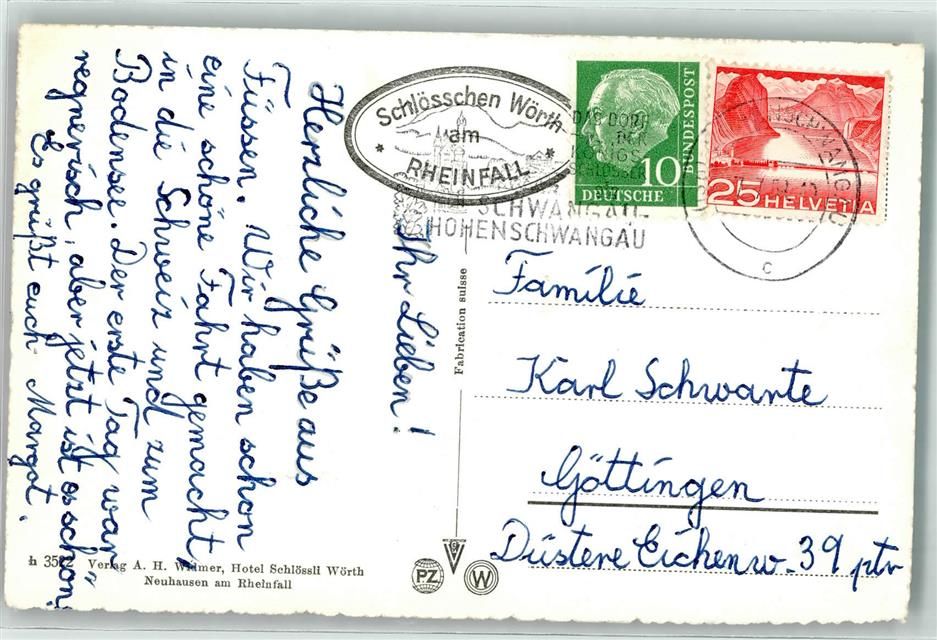 Ihr Lieben!
Herzliche Grüße aus
Füssen. Wir haben schon
eine schöne Fahrt gemacht,
in die Schweiz und zum
Bodensee. Der erste Tag war
regnerisch, aber jetzt ist es schön.
Es grüßt euch Margot.
Schlösschen Wörth
am
RHEINFALL
DAS DORF
DER
KÖNIGS
SCHLÖSSER
SCHWANGAU-
HOHENSCHWANGAU
10
DEUTSCHE
BUNDESPOST
25 HELVETIA
c
Familie
Karl Schwarte
Göttingen
Düstere Eichenw. 39 ptr
Fabrication suisse
h 3522 Verlag A. H. Widmer, Hotel Schlössli Wörth
Neuhausen am Rheinfall
PZ
W